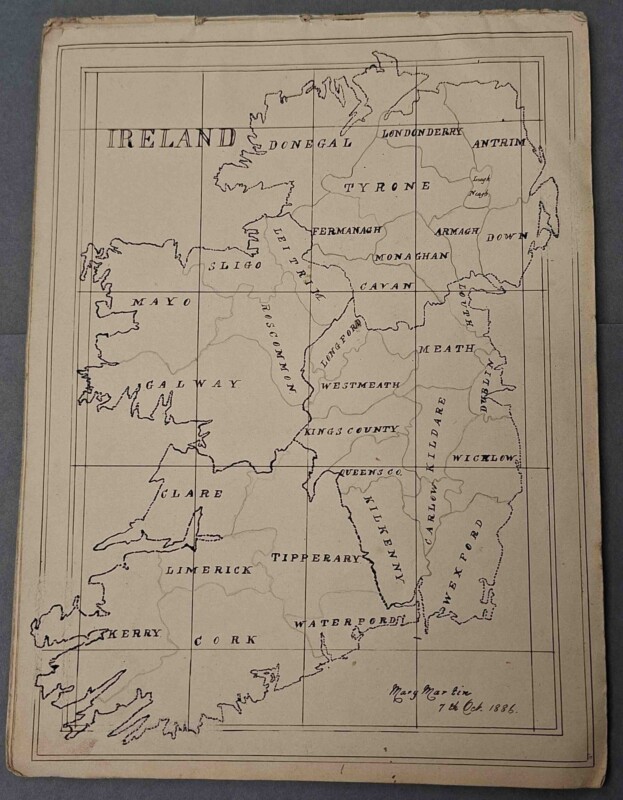 IRELAND
DONEGAL
LONDONDERRY
ANTRIM
TYRONE
Lough
Neagh
FERMANAGH
ARMAGH
DOWN
MONAGHAN
LEITRIM
SLIGO
CAVAN
MAYO
LOUTH
ROSCOMMON
LONGFORD
MEATH
GALWAY
WESTMEATH
DUBLIN
KINGS COUNTY
KILDARE
WICKLOW
QUEENS CO.
CLARE
KILKENNY
CARLOW
WEXFORD
TIPPERARY
LIMERICK
WATERFORD
KERRY
CORK
Mary Martin
7th Oct. 1886.